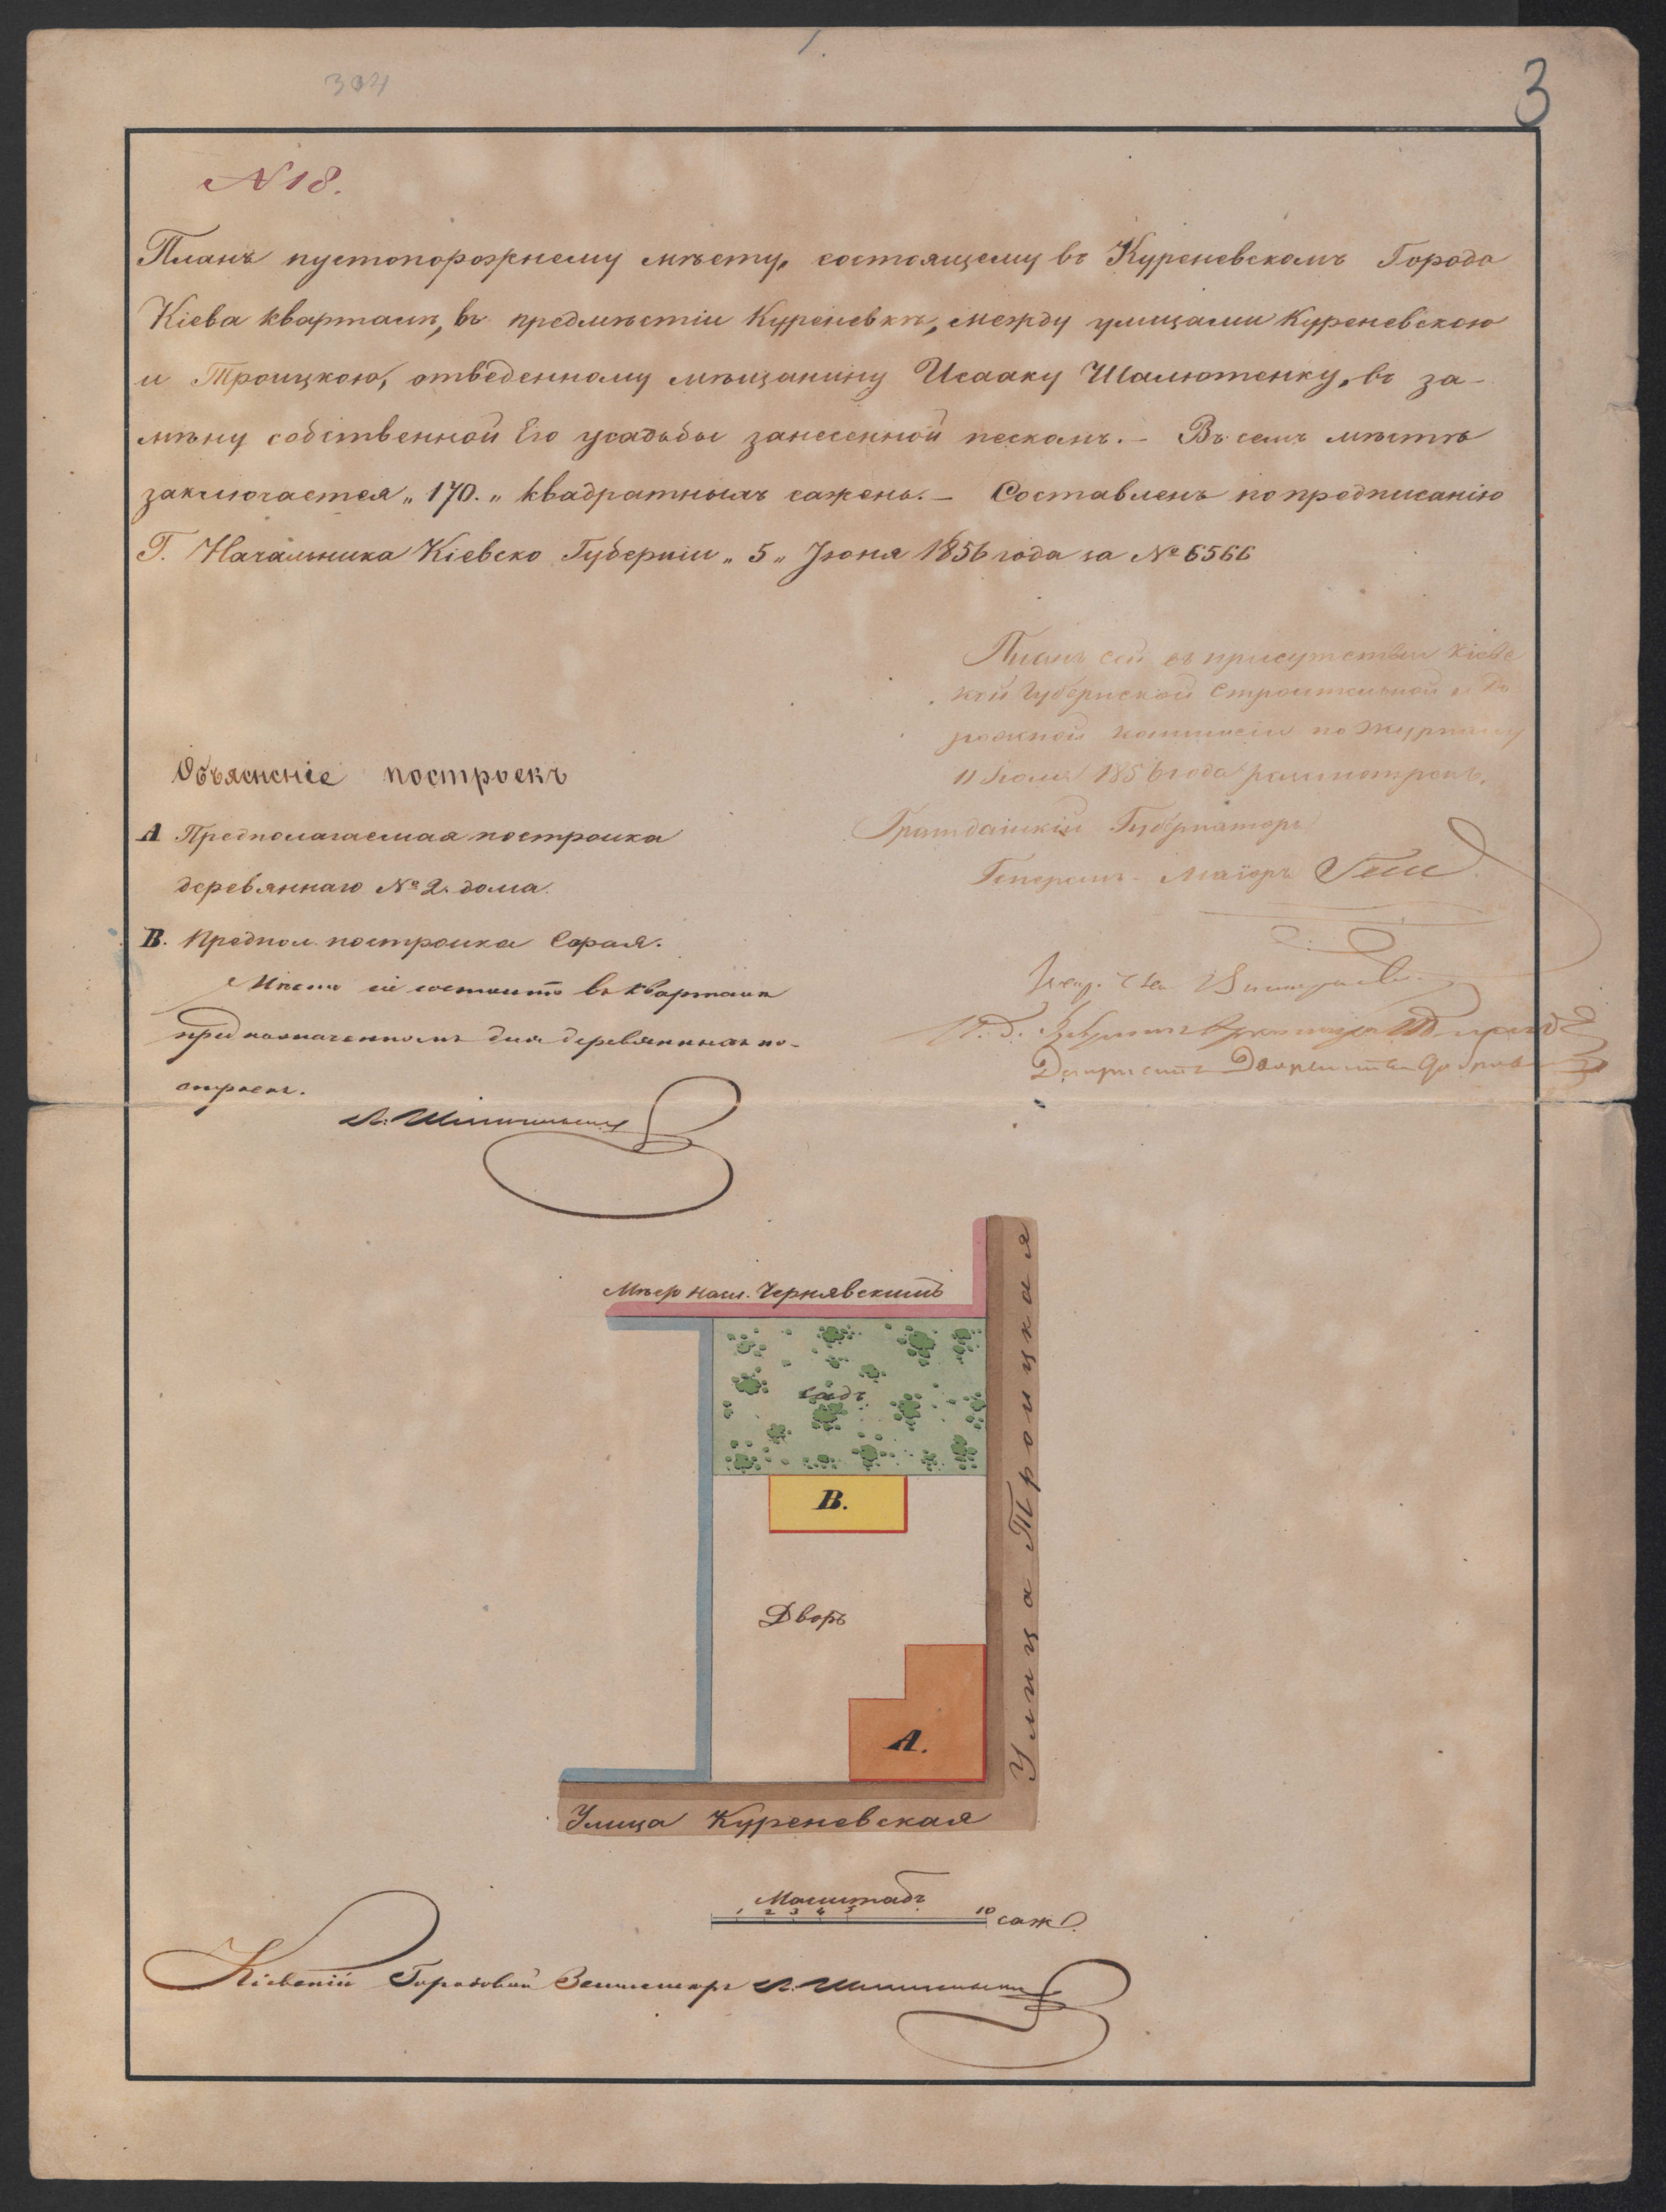 304
3
N 18.
Планъ пустопорожнему мѣсту, состоящему въ Куреневскомъ Города
Кіева кварталѣ, въ предмѣстіи Куреневкѣ, между улицами Куреневскою
и Троицкою, отведенному мѣщанину Исааку Шалютенку, въ за-
мѣну собственной Его усадьбы занесенной пескомъ. – Въ семъ мѣстѣ
заключается „ 170. „ квадратныхъ сажень. – Составленъ по предписанію
Г. Начальника Кіевско Губерніи „ 5 „ Іюня 1856 года за № 6566
Планъ сей въ присутствіи Кіевс
кой Губернской Строительной и До
рожной Коммисіи по журналу
11 Іюля 1856 года разсмотренъ.
Гражданскій Губернаторъ
Генералъ-Маіоръ Гессе
Объясненіе построекъ
А Предполагаемая постройка
деревяннаго № 2. дома.
В. Предпол. постройка Сарая.
Мѣсто сіе состоитъ въ Кварталѣ
предназначенномъ для деревянныхъ по-
строекъ.
И. д. Губернскаго
Мѣсто насл. Чернявскихъ
садъ
В.
Дворъ
А.
Улица Троицкая
Улица Куреневская
Масштабъ
1 2 3 4 5 10 саж.
Кіевскій Городовой Землемеръ Л.